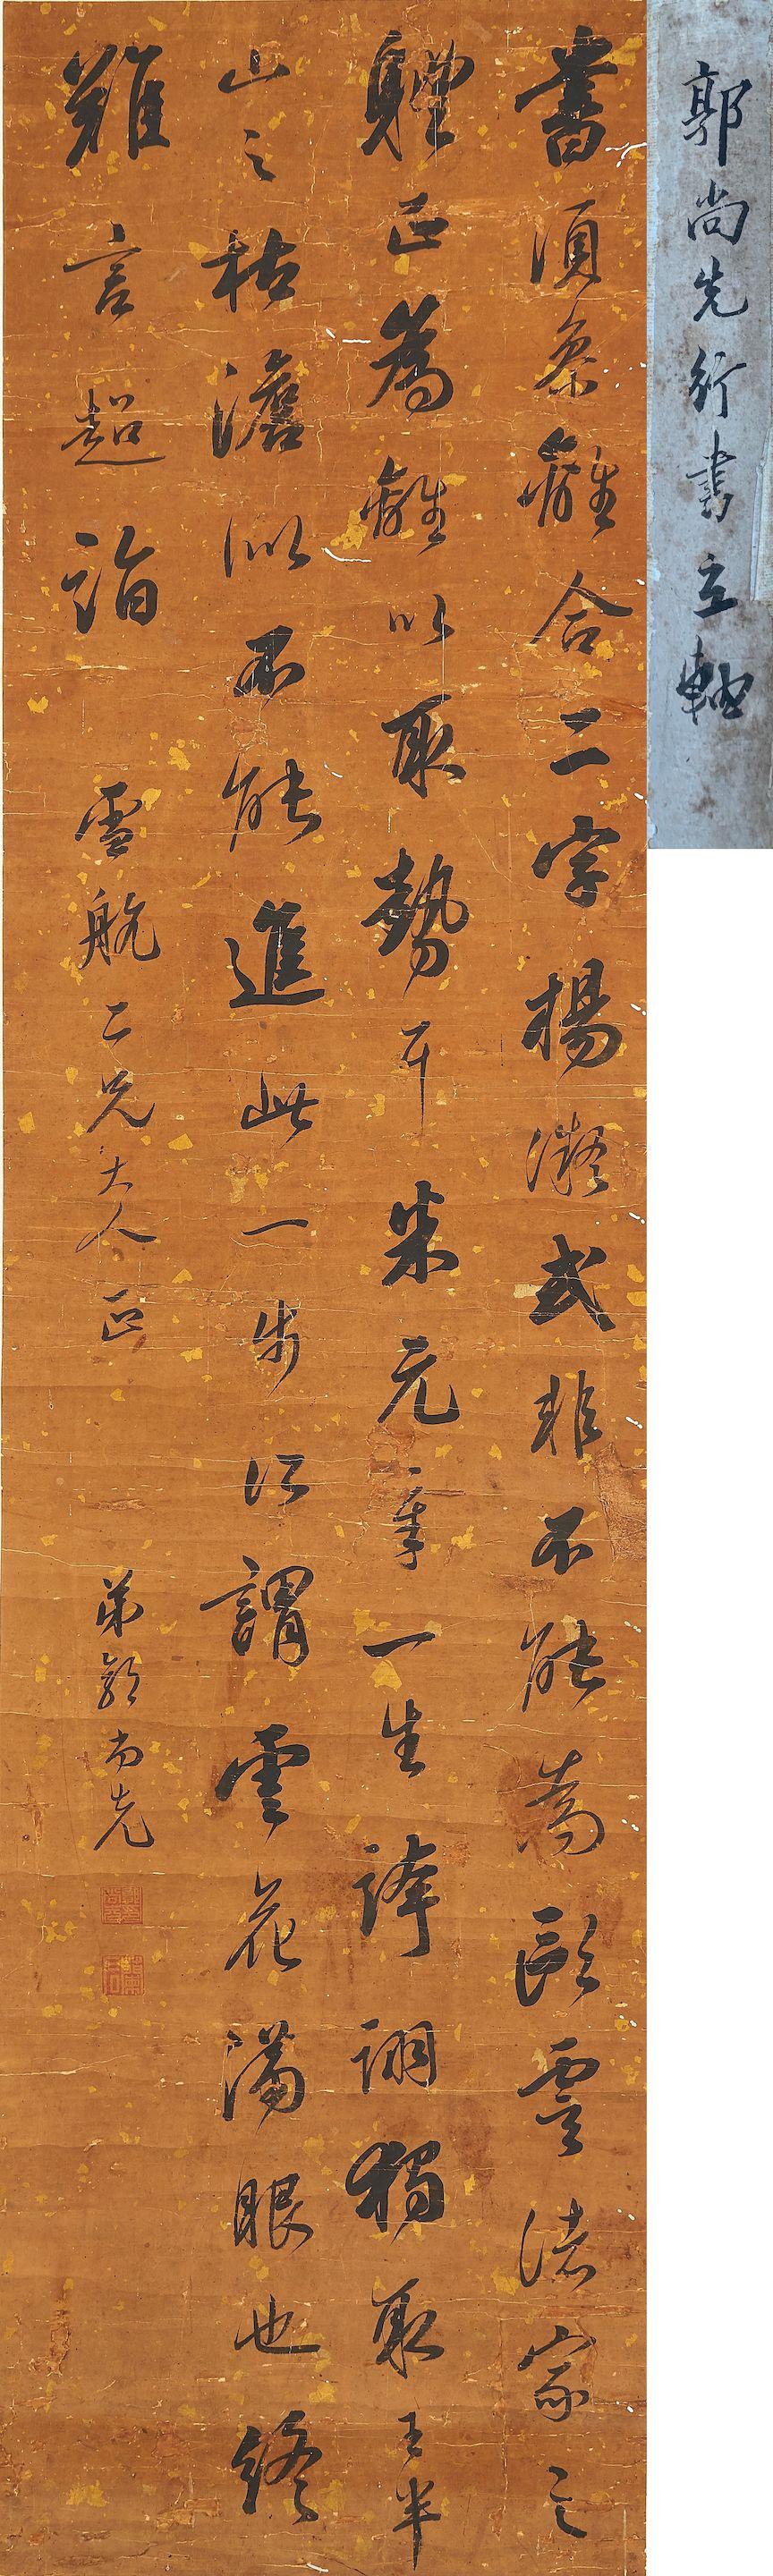 郭尚先行書立軸
書須參離合二字楊凝式非不能為歐虞諸家之
體正為離以取勢耳米元章一生誇詡獨取王半
山之枯澹似不能進此一步所謂雲花滿眼也終
難言超詣
雪航二兄大人正
弟郭尚先